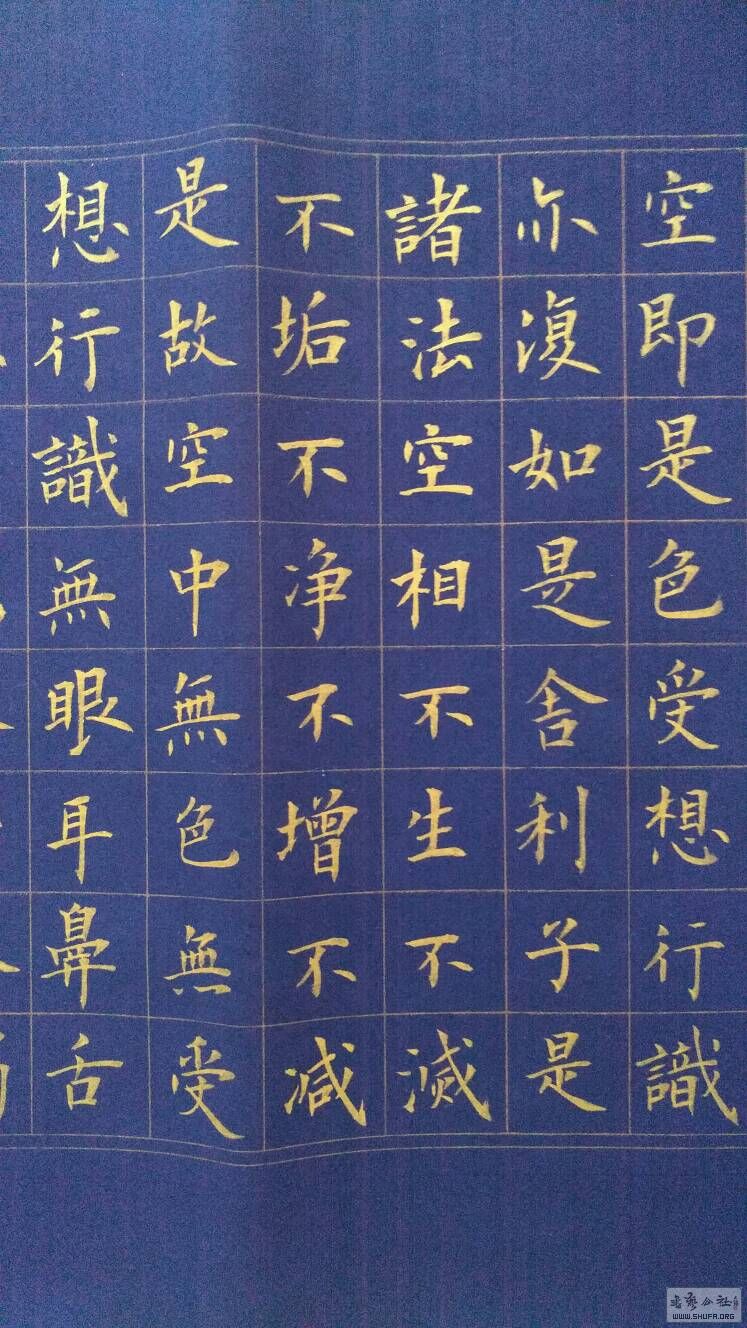 空即是色受想行識
亦復如是舍利子是
諸法空相不生不滅
不垢不净不增不减
是故空中無色無受
想行識無眼耳鼻舌
WWW.SHUFA.ORG